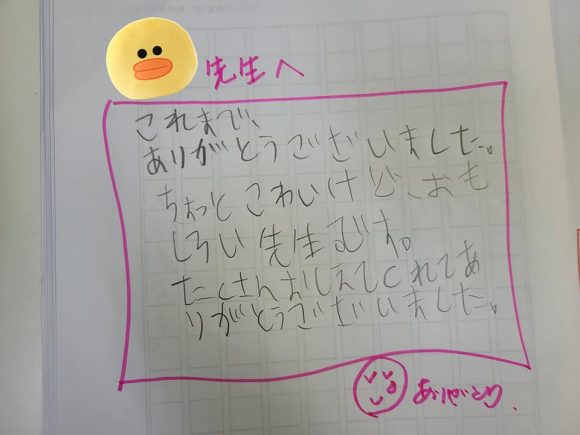 先生へ
これまで、
ありがとうございました。
ちょっとこわいけど、おも
しろい先生です。
たくさんおしえてくれてあ
りがとうございました。
ありがとう.